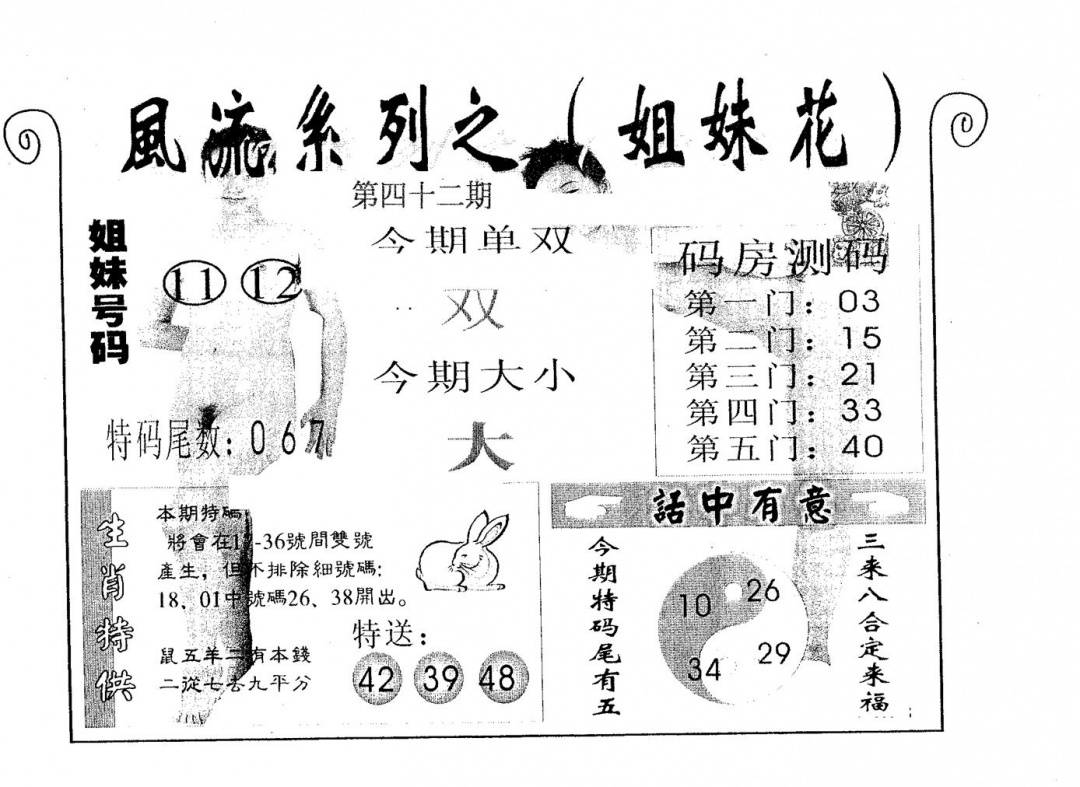 風流系列之（姐妹花）
第四十二期
姐妹号码
11 12
今期单双
双
今期大小
大
特码尾数：067
码房测码
第一门：03
第二门：15
第三门：21
第四门：33
第五门：40
生肖特供
本期特
將會在1 -36號間雙號
產生，但不排除細號碼：
18、01中號碼26、38開出。
鼠五羊二有本錢
二從七去九平分
特送：
42 39 48
話中有意
今期特码尾有五
10 26
34 29
三来八合定来福